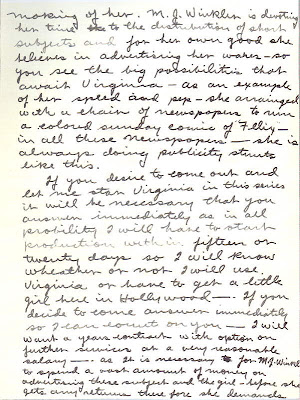 making of her. M.J. Winkler is devoting
her time to the distribution of short
subjects and for her own good she
believes in advertising her wares - so
you see the big possibilities that
await Virginia - as an example
of her speed and pep - she arranged
with a chain of newspapers to run
a colored sunday comic of Felix -
in all these newspapers - she is
always doing publicity stunts
like this.
If you desire to come out and
let me star Virginia in this series
it will be necessary that you
answer immediately as in all
probility I will have to start
production within fifteen or
twenty days so I will know
wheather or not I will use
Virginia or have to get a little
girl here in Hollywood -. If you
decide to come answer immediatly
so I can count on you - I will
want a years contract with option on
further services at a very reasonable
salary -. as it is necessary for M.J. Winkler
to spend a vast amount of money on
advertising these subject and the girl - before she
gets any returns there fore she demands